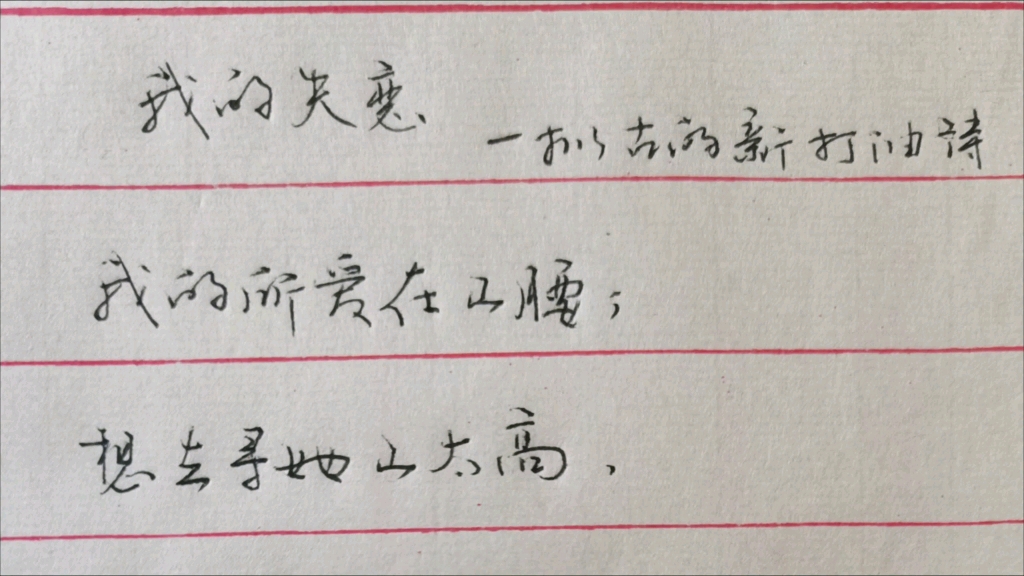 我的失恋
—拟古的新打油诗
我的所爱在山腰;
想去寻她山太高,